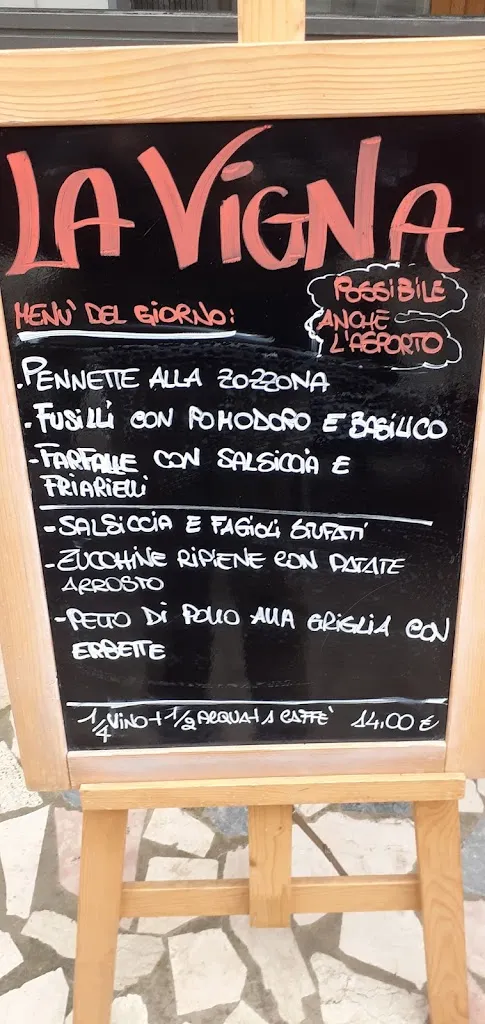 LA VIGNA
MENÙ DEL GIORNO:
POSSIBILE
ANCHE
L'ASPORTO
.PENNETTE ALLA ZOZZONA
.FUSILLI CON POMODORO E BASILICO
-FARFALLE CON SALSICCIA E
FRIARIELLI
-SALSICCIA E FAGIOLI STUFATI
-ZUCCHINE RIPIENE CON PATATE
ARROSTO
-PETTO DI POLLO ALLA GRIGLIA CON
ERBETTE
1/4 VINO+1/2 ACQUA+1 CAFFE' 14,00 €